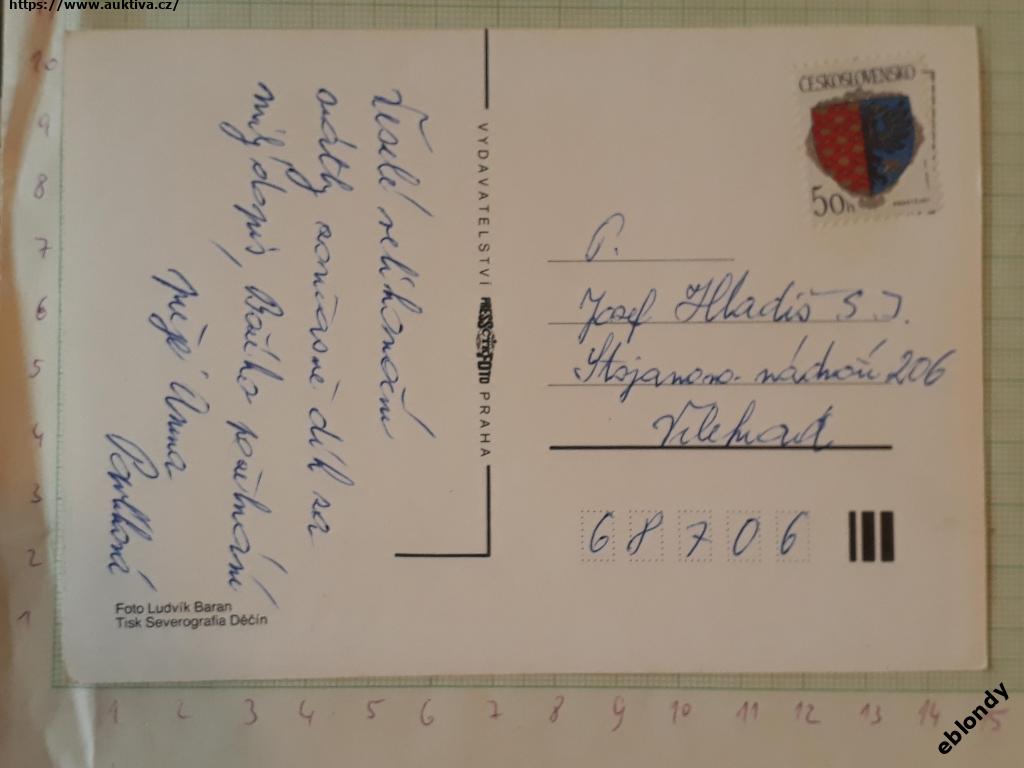 https://www.auktiva.cz/
Veselé velikonoční
svátky současně dík za
milý dopis, Božího požehnání
přeje Anna
VYDAVATELSTVÍ PRESSFOTO PRAHA
Foto Ludvík Baran
Tisk Severografia Děčín
ČESKOSLOVENSKO
50h
P.
Josef Hladiš S.J.
Stojanovo nádvoří 206
Velehrad
68706
10
9
8
7
6
5
4
3
2
1
1 2 3 4 5 6 7 8 9 10 11 12 13 14 15
eblondy